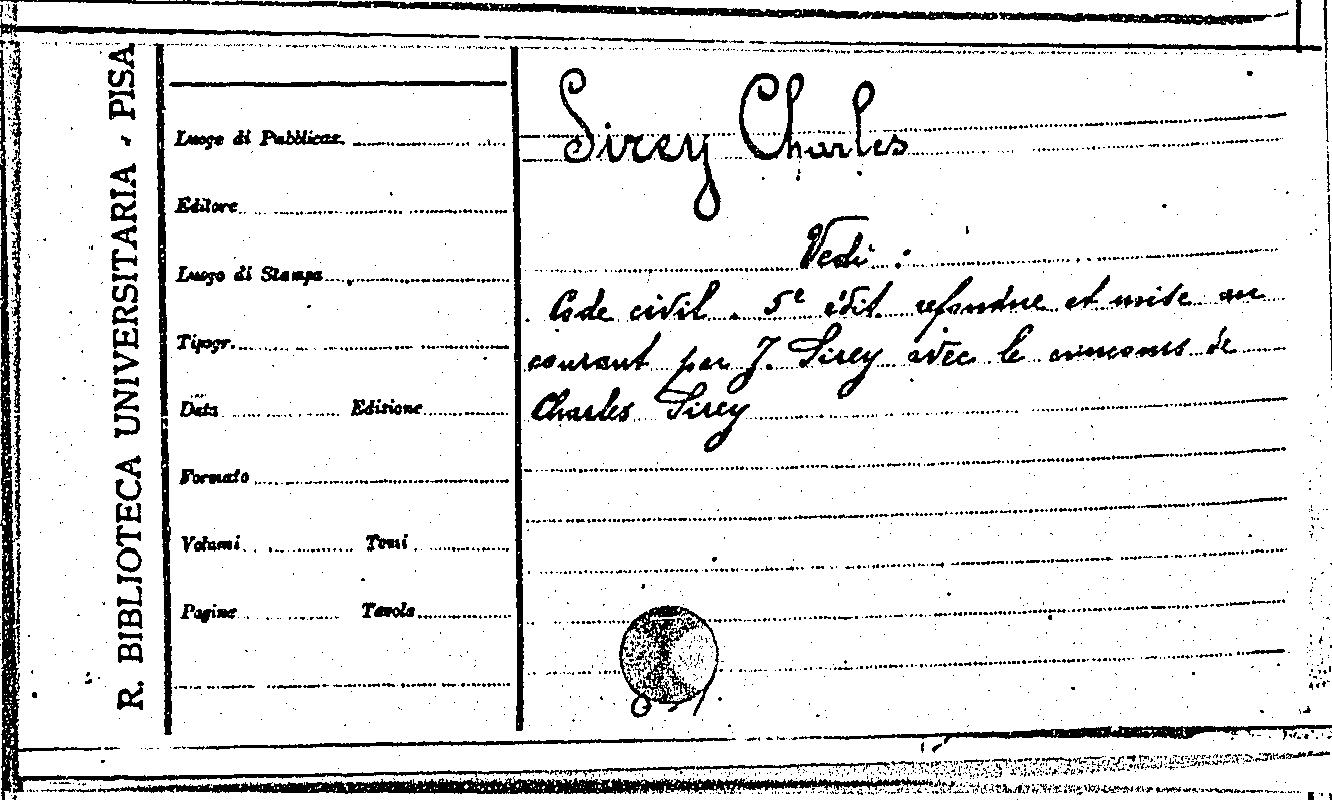 R. BIBLIOTECA UNIVERSITARIA - PISA
Luogo di Pubblicaz.
Editore
Luogo di Stampa
Tipogr.
Data Edizione
Formato
Volumi Tomi
Pagine Tavole
Sirey Charles
Vedi :
Code civil. 5e édit. refondue et mise au
courant par J. Sirey avec le concours de
Charles Sirey